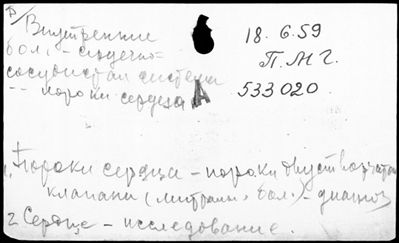 Внутренние
бол. - сердечно-
сосудистая система
-- пороки сердца А
18.6.59
П.М.Г.
533020.
1. Пороки сердца - пороки двустворчатого
клапана (митральн. бол.) - диагноз
2 Сердце - исследование.